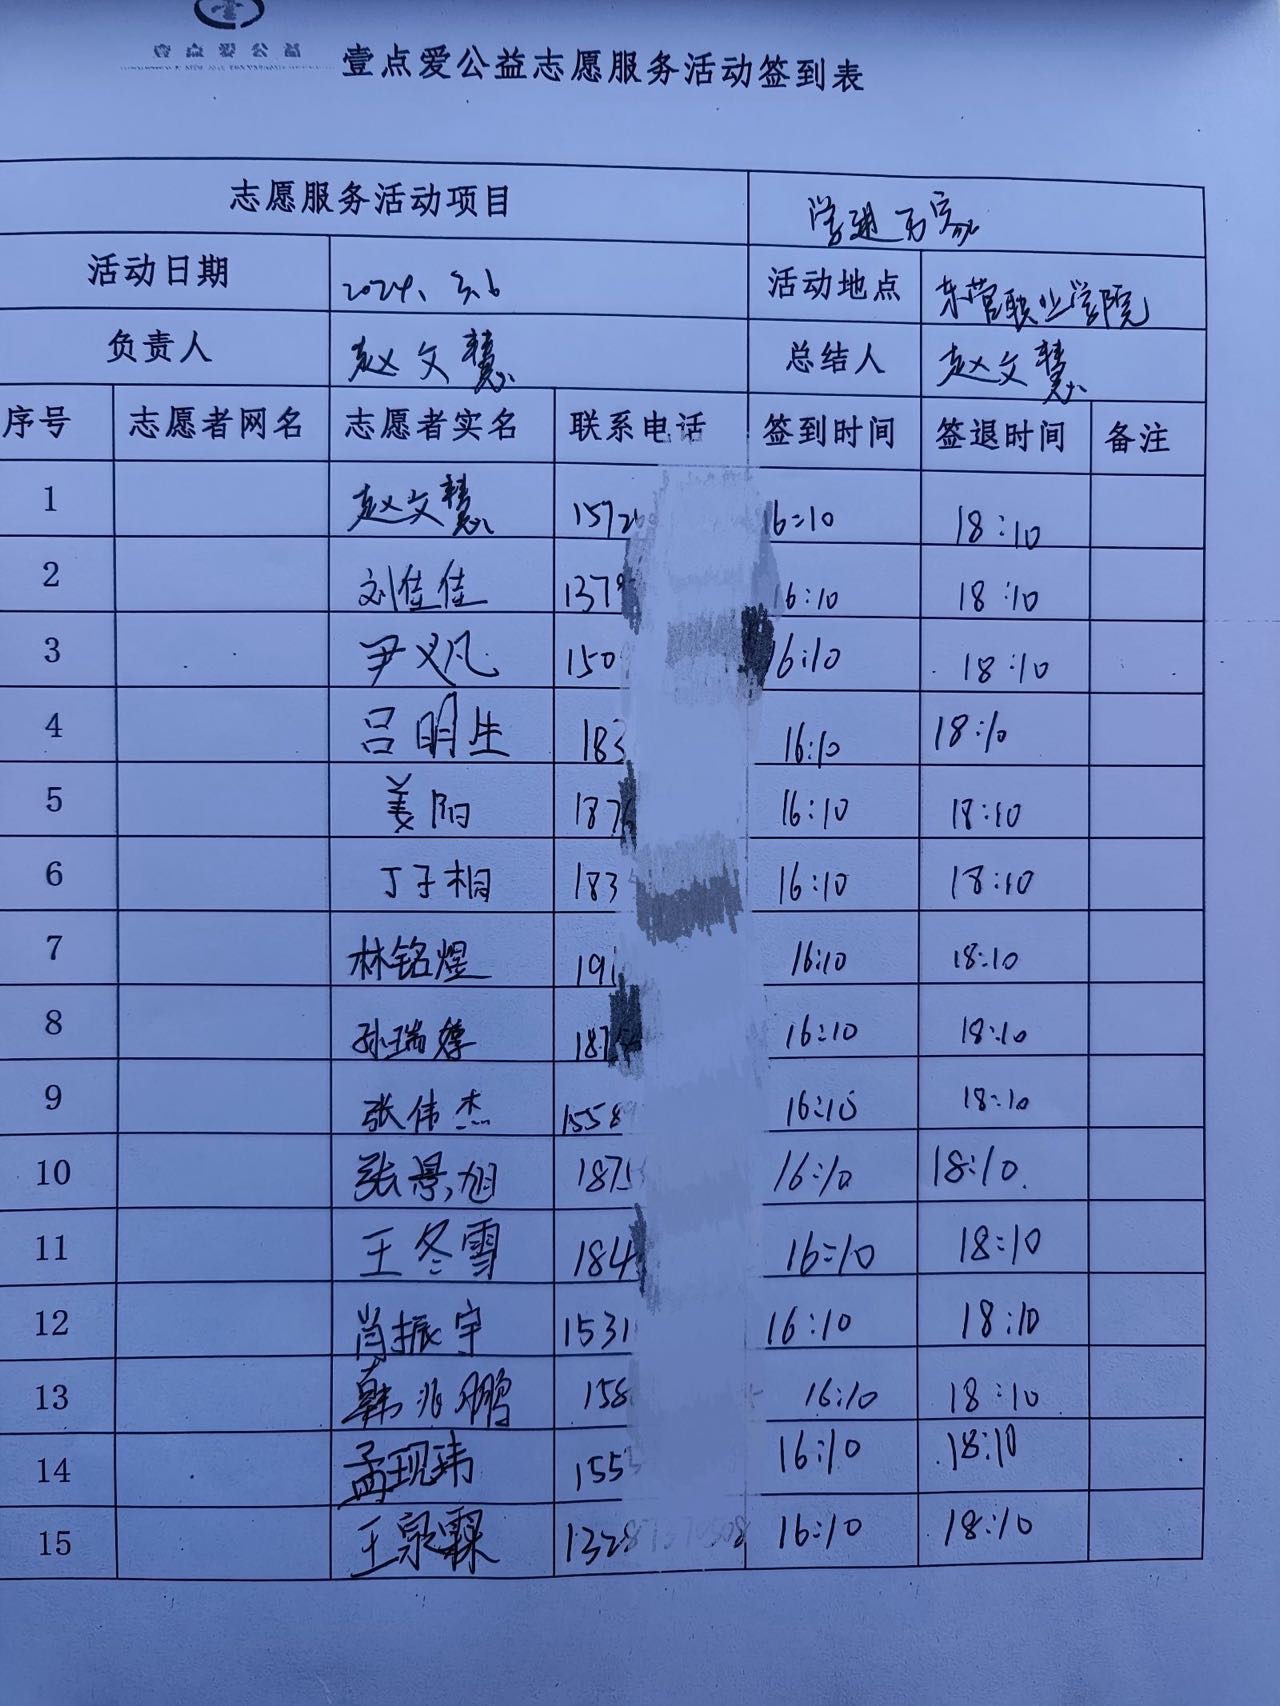 壹点爱公益
壹点爱公益志愿服务活动签到表
志愿服务活动项目 学进万家
活动日期 2024. 3.6 活动地点 东营职业学院
负责人 赵文慧 总结人 赵文慧
序号 志愿者网名 志愿者实名 联系电话 签到时间 签退时间 备注
1 赵文慧 1572 16:10 18:10
2 刘佳佳 137 16:10 18:10
3 尹义凡 150 16:10 18:10
4 吕明生 183 16:10 18:10
5 姜阳 187 16:10 18:10
6 丁子桐 183 16:10 18:10
7 林铭煜 191 16:10 18:10
8 孙瑞 187 16:10 18:10
9 张伟杰 1558 16:10 18:10
10 张景旭 1875 16:10 18:10
11 王冬雪 184 16:10 18:10
12 肖振宇 1531 16:10 18:10
13 韩兆鹏 158 16:10 18:10
14 孟现玮 155 16:10 18:10
15 王泉霖 1328 16:10 18:10